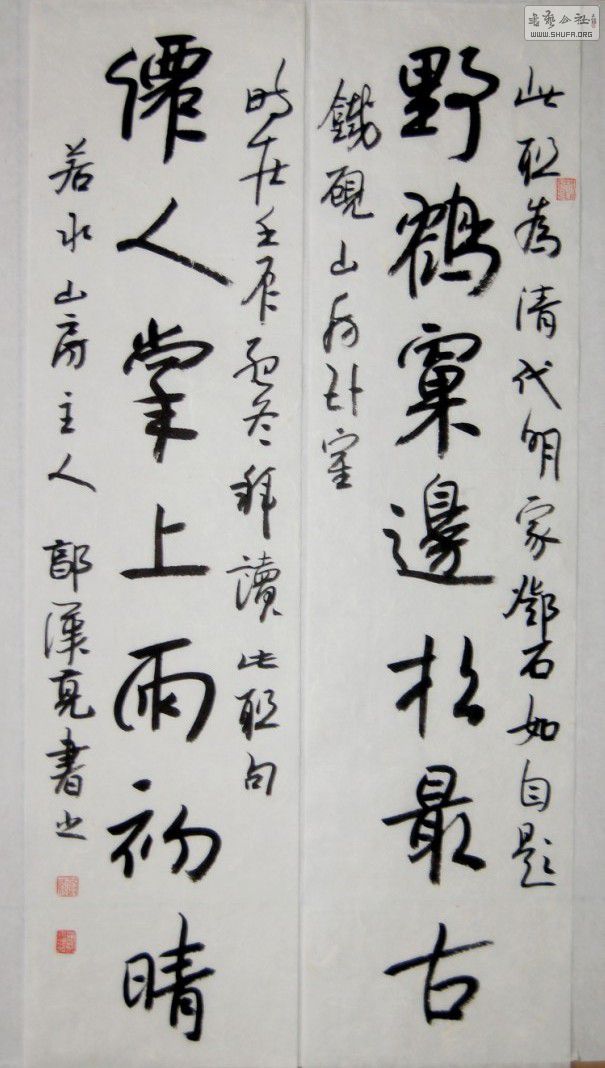 書藝公社
WWW.SHUFA.ORG
此联為清代明家鄧石如自题
野鶴窠邊松最古
鐵硯山房卧室
時在壬辰孟冬拜讀此联句
僊人掌上雨初晴
若水山房主人 郭漢亮書之